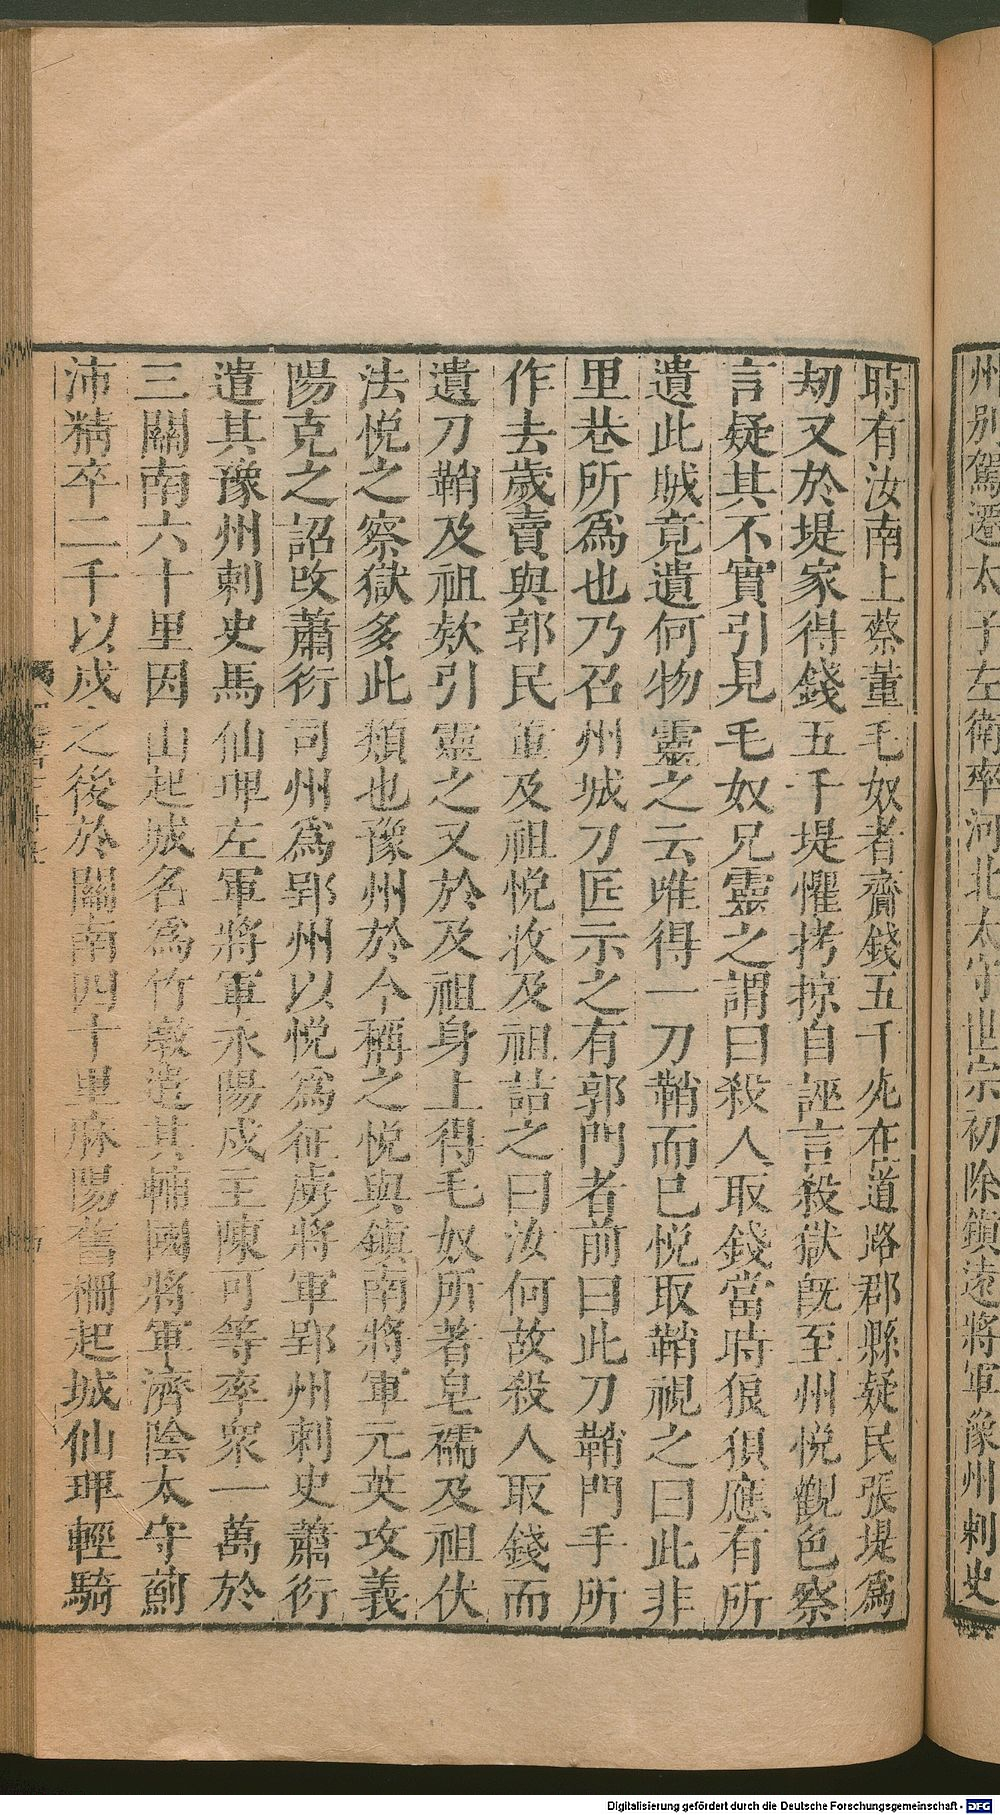 州別駕遷太子左衛率河北太守世宗初除鎮遠將軍豫州刺史
時有汝南上蔡董毛奴者齎錢五千死在道路郡縣疑民張堤爲
劫又於堤家得錢五千堤懼拷掠自誣言殺獄既至州悅觀色察
言疑其不實引見毛奴兄靈之謂曰殺人取錢當時狼狽應有所
遺此賊竟遺何物靈之云唯得一刀鞘而已悅取鞘視之曰此非
里巷所爲也乃召州城刀匠示之有郭門者前曰此刀鞘門手所
作去歲賣與郭民董及祖悅收及祖詰之曰汝何故殺人取錢而
遺刀鞘及祖欵引靈之又於及祖身上得毛奴所着皂襦及祖伏
法悅之察獄多此類也豫州於今稱之悅與鎮南將軍元英攻義
陽克之詔改蕭衍司州爲郢州以悅爲征虜將軍郢州刺史蕭衍
遣其豫州刺史馬仙琕左軍將軍永陽戍主陳可等率衆一萬於
三關南六十里因山起城名爲竹敦遣其輔國將軍濟陰太守薊
沛精卒二千以戍之後於關南四十里麻陽舊柵起城仙琕輕騎
Digitalisierung gefördert durch die Deutsche Forschungsgemeinschaft - DFG